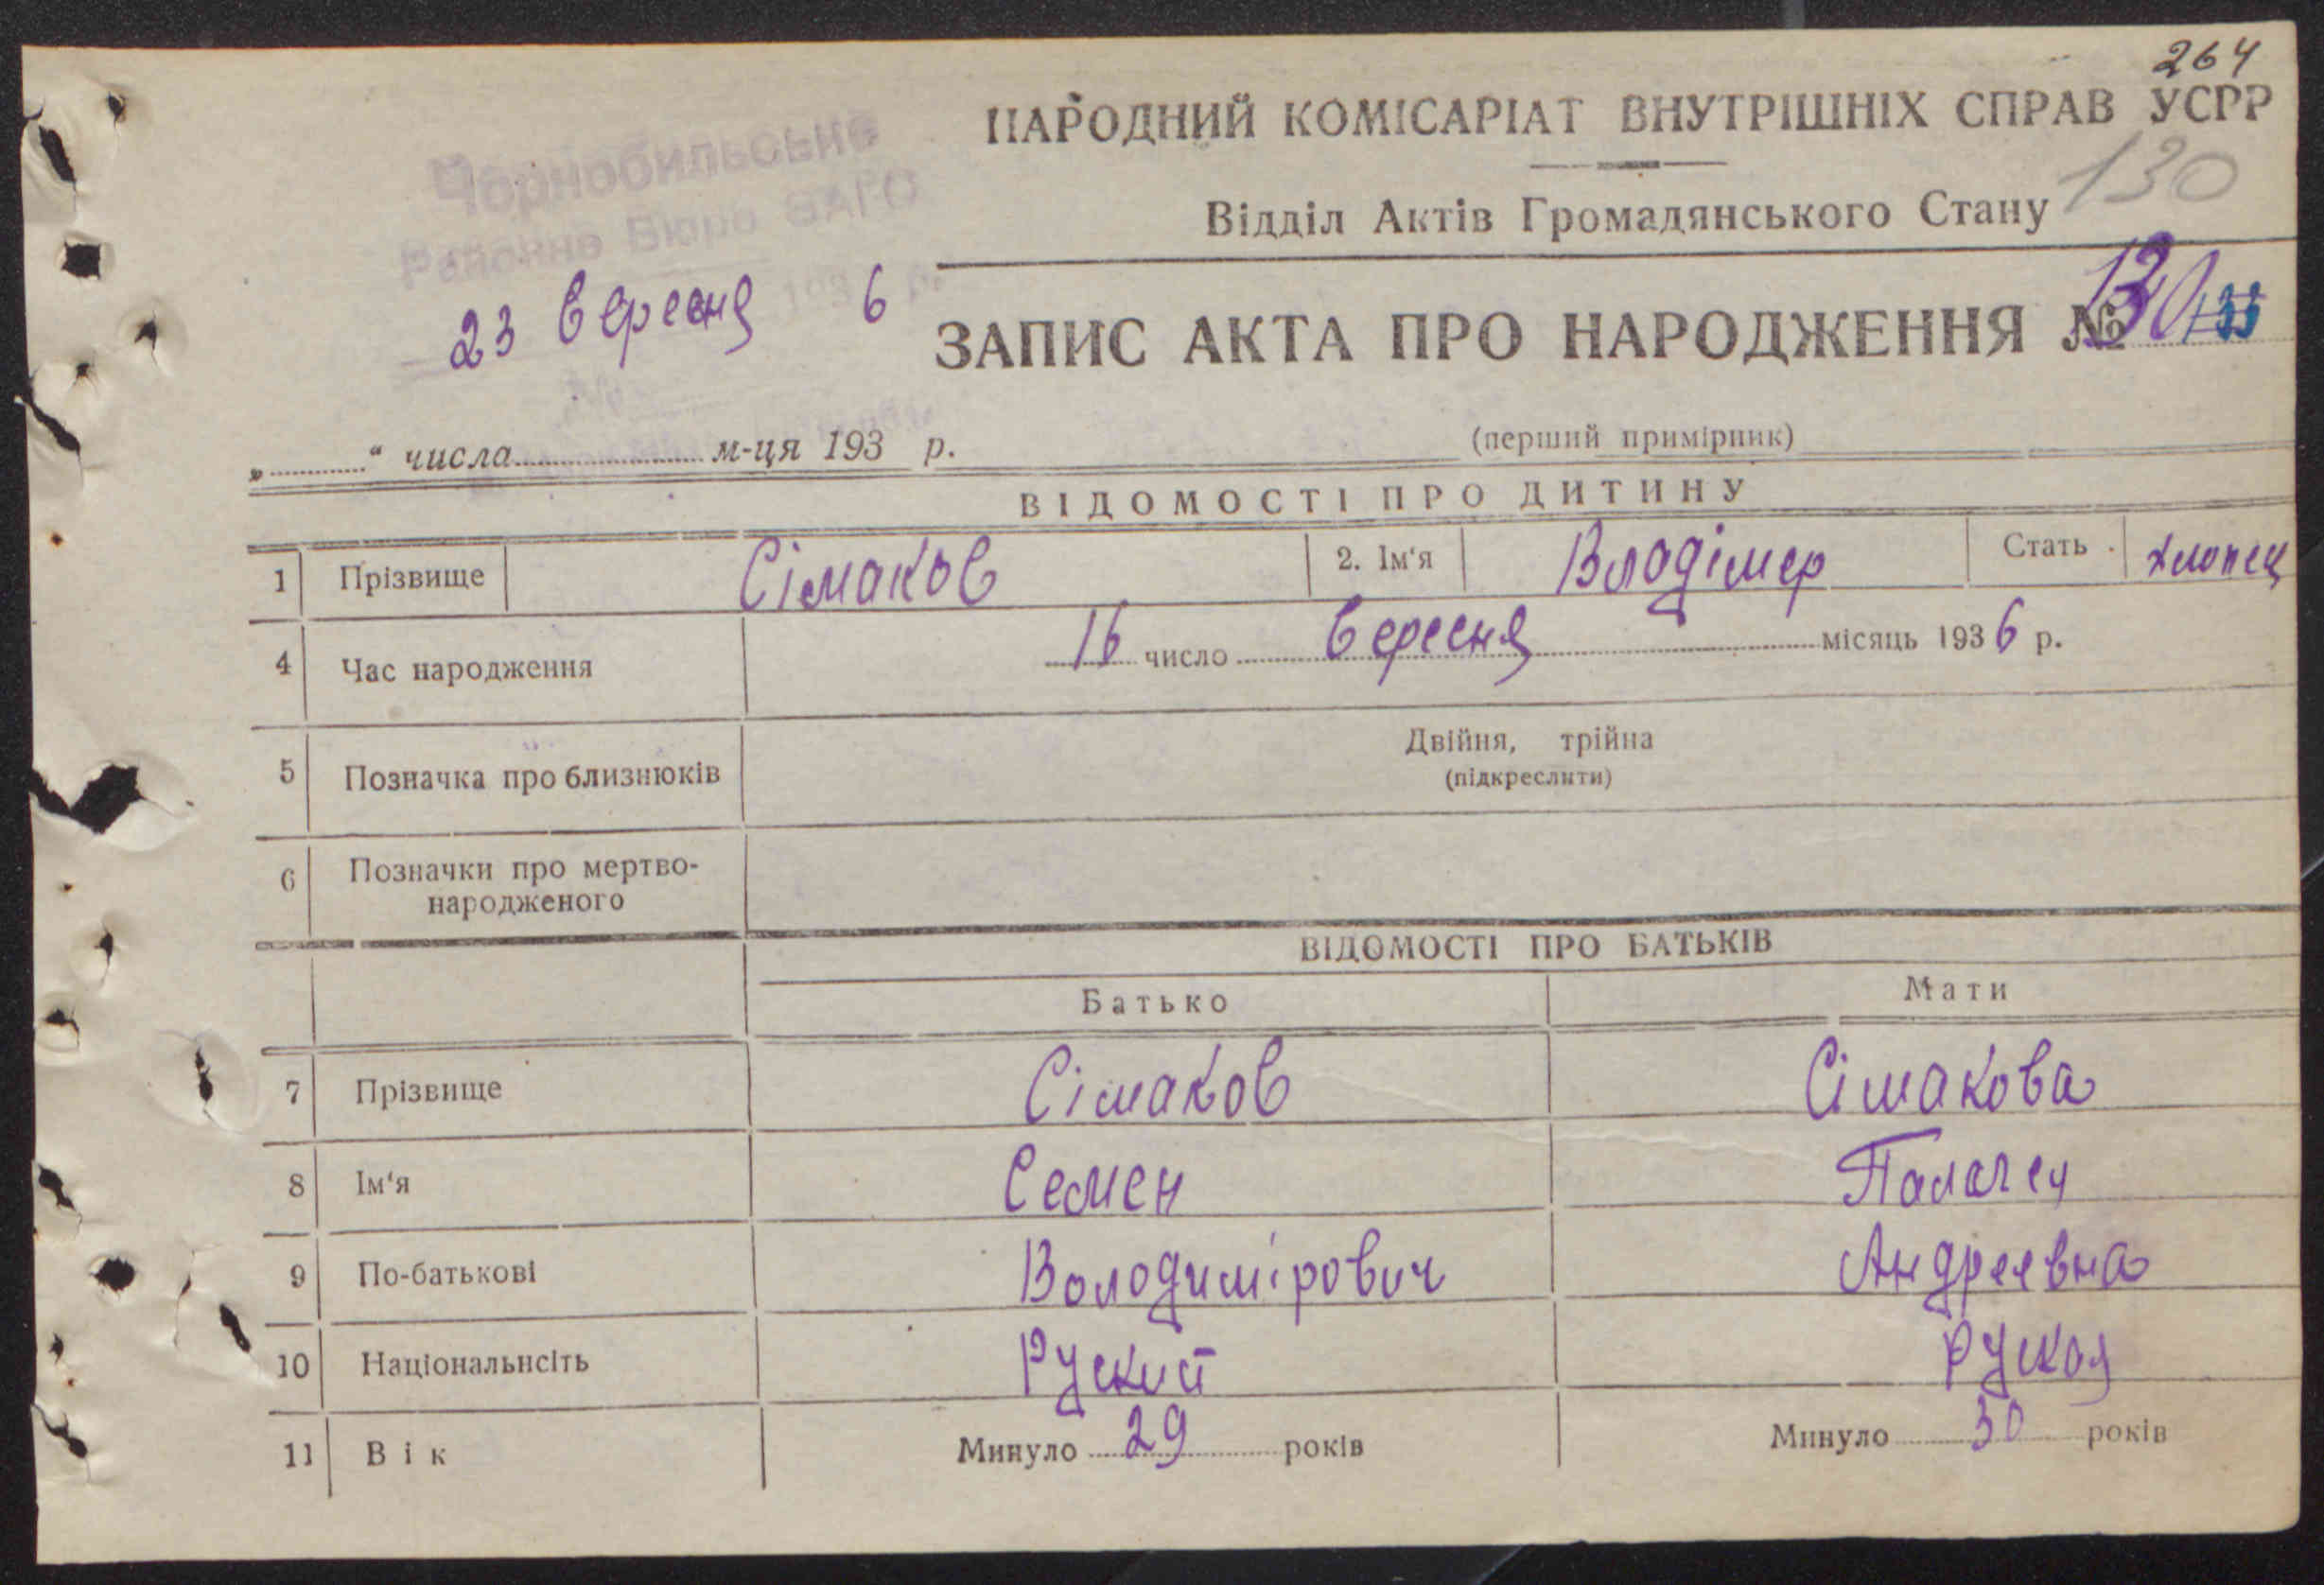 264
НАРОДНИЙ КОМІСАРІАТ ВНУТРІШНІХ СПРАВ УСРР
130
Чорнобильське
Районне Бюро ЗАГС
Відділ Актів Громадянського Стану
193 р.
23 вересня 6
ЗАПИС АКТА ПРО НАРОДЖЕННЯ № 130
„ “ числа м-ця 193 р.
(перший примірник)
ВІДОМОСТІ ПРО ДИТИНУ
1 Прізвище Сімаков 2. Ім‘я Владімер Стать хлопец
4 Час народження 16 число вересня місяць 1936 р.
5 Позначка про близнюків Двійня, трійна
(підкреслити)
6 Позначки про мертво-
народженого
ВІДОМОСТІ ПРО БАТЬКІВ
Батько Мати
7 Прізвище Сімаков Сімакова
8 Ім‘я Семен Палагея
9 По-батькові Володимірович Андреевна
10 Національнсіть Руский Руская
11 Вік Минуло 29 років Минуло 30 років